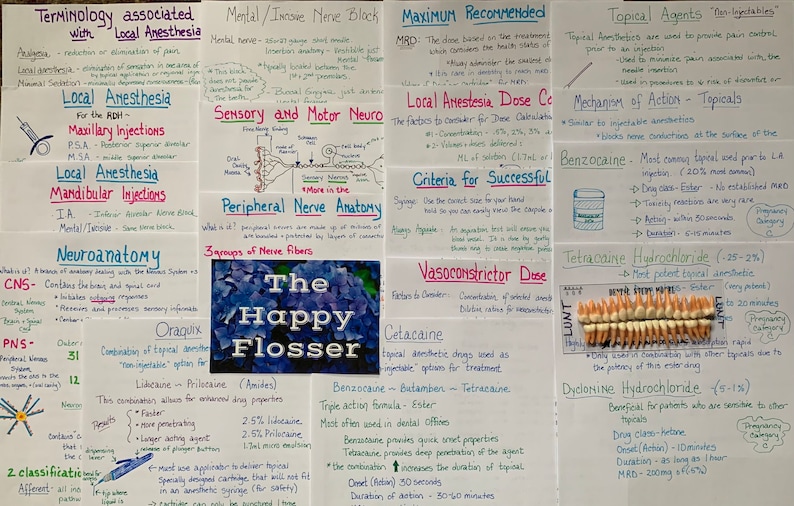 Terminology associated
with Local Anesthesia
Analgesia - reduction or elimination of pain
Local anesthesia - elimination of sensation in area of
by topical application or regional
Minimal Sedation -
Local Anesthesia
For the RDH~
Maxillary Injections
P.S.A. - Posterior superior alveolar
M.S.A. - middle superior alveolar
Local Anesthesia
Mandibular Injections
I.A. - Inferior Alveolar Nerve Block
Mental/Incisive - Same Nerve Block
Neuroanatomy
What is it? A branch of anatomy dealing with the Nervous System
CNS- Contains the brain and spinal cord
Central Nervous
System
Brain + Spinal
Cord
* Initiates outgoing responses
* Receives and processes sensory
PNS-
Peripheral Nervous
System
Outer
31
12
Neuron
Contains
2 classifications
Afferent- all
Mental/Incisive Nerve Block
Mental nerve - 25 or 27 gauge short needle
Insertion anatomy -
* typically located between the
1st + 2nd premolars.
* This block
does not provide
anesthesia for
the teeth.
Buccal
Sensory and Motor Neuro
Free Nerve Ending
Schwann
Cell
Node of
Ranvier
Cell body
nucleus
Oral
Cavity
Mucosa
Sensory Nerves
* More in the
Peripheral Nerve Anatomy
What is it? peripheral nerves are made up of millions of
are bundled + protected by layers of
3 groups of Nerve fibers
The
Happy
Flosser
Oraquix
Combination of topical
"non-injectable" option for
Lidocaine ~ Prilocaine (Amides)
This combination allows for enhanced drug properties
Results
* Faster
* More penetrating
* Longer acting agent
2.5% lidocaine
2.5% Prilocaine
1.7ml micro emulsion
dispensing
lever
release of plunger button
* tip where
liquid is
Must use applicator to deliver topical
Specially designed cartridge that will not fit
in an anesthetic syringe (for safety)
cartridge can only be punctured 1 time
Maximum Recommended
MRD: The dose based on the treatment
which considers the health status of
* Always administer the smallest
* It is rare in dentistry to reach MRD
Local Anestesia Dose
The factors to consider for Dose
#1 - Concentration - .5%, 2%, 3%
#2 - Volume of doses delivered:
ML of solution (1.7ml or
Criteria for Successful
Syringe: Use the correct size for your hand
hold so you can easily view the carpule
Always Aspirate: An aspiration test will ensure
blood vessel. It is done by gently
thumb ring to create negative
Vasoconstrictor Dose
Factors to Consider: Concentration of selected
Dilution ratios for vasoconstrictors
Cetacaine
topical anesthetic drugs used as
injectable" options for treatment.
Benzocaine ~ Butamben ~ Tetracaine
Triple action formula - Ester
Most often used in dental offices
Benzocaine provides quick onset properties
Tetracaine, provides deep penetration of the agent
* the combination increases the duration of topical
Onset (Action) 30 seconds
Duration of action - 30-60 minutes
Topical Agents "Non-Injectables"
Topical Anesthetics are used to provide pain control
prior to an injection
- Used to minimize pain associated with the
needle insertion
Used in procedures to risk of discomfort or
Mechanism of Action - Topicals
* Similar to injectable anesthetics
* blocks nerve conductions at the surface of the
Benzocaine - Most common topical used prior to L.A.
injection. (20% most common)
Drug class - Ester - No established MRD
Toxicity reactions are very rare
Action - within 30 seconds
Duration - 5-15 minutes
Pregnancy
Category
C
Tetracaine Hydrochloride (.25-2%)
Most potent topical anesthetic
- Ester (very potent)
to 20 minutes
minutes
Highly
absorption rapid
* Only used in combination with other topicals due to
the potency of this ester drug
Pregnancy
Category
C
LUNT
LUNT
Dyclonine Hydrochloride (.5-1%)
Beneficial for patients who are sensitive to other
topicals
Drug class - Ketone
Onset (Action) - 10 minutes
Duration - as long as 1 hour
MRD - 200mg of (.5%)
Pregnancy
Category
C